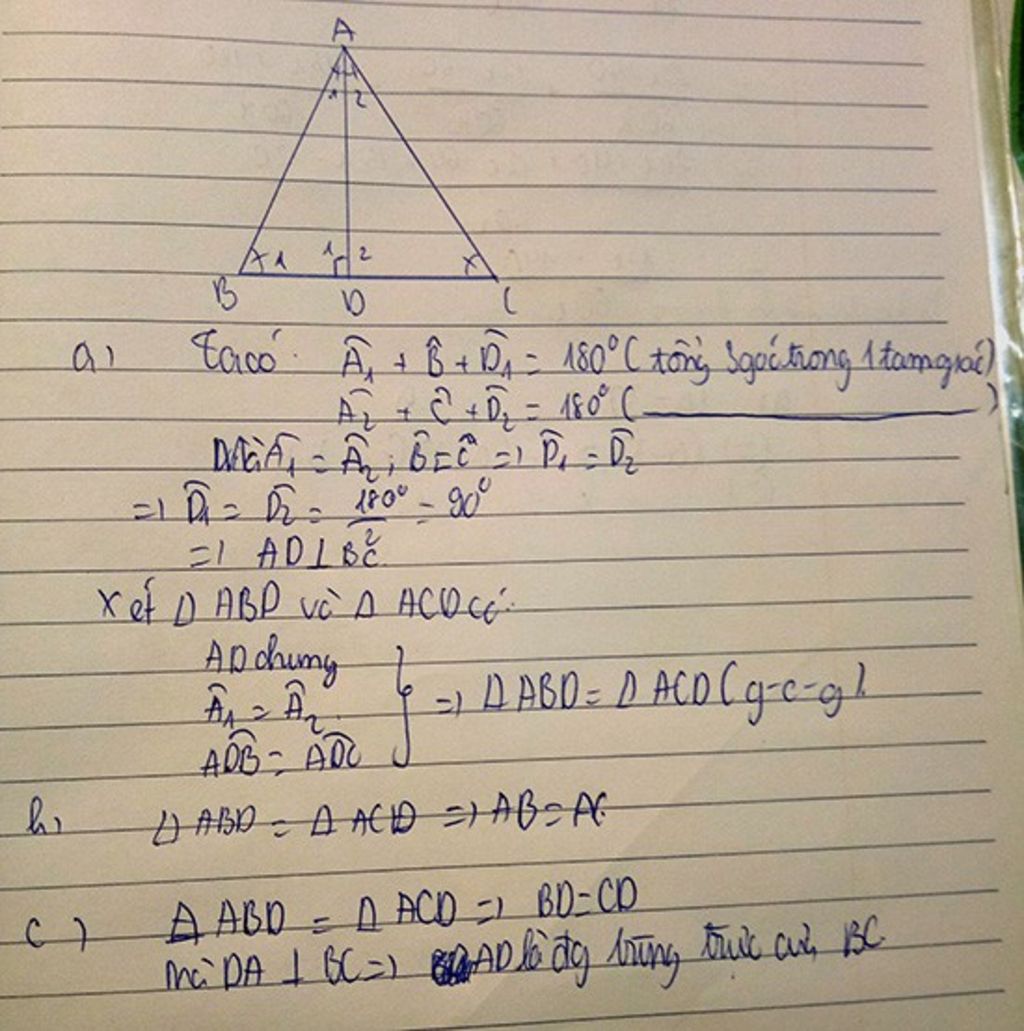 A
1 2
1 1 2
B D C
a) Ta có: Â₁ + B̂ + D̂₁ = 180° ( tổng 3 góc trong 1 tam giác)
Â₂ + Ĉ + D̂₂ = 180° ( ——— )
Mà Â₁ = Â₂ ; B̂ = Ĉ => D̂₁ = D̂₂
=> D̂₁ = D̂₂ = 180°/2 = 90°
=> AD ⊥ BC
Xét Δ ABD và Δ ACD có:
AD chung
Â₁ = Â₂
ADB = ADC } => Δ ABD = Δ ACD ( g-c-g ).
b) Δ ABD = Δ ACD => AB = AC
c) Δ ABD = Δ ACD => BD = CD
mà DA ⊥ BC => AD là đg trung trực của BC